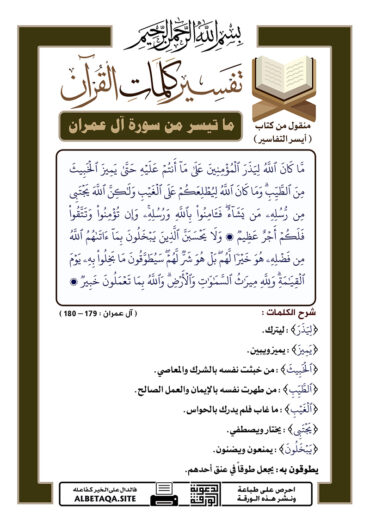 بسم الله الرحمن الرحيم
تفسير كلمات القرآن
منقول من كتاب
( أيسر التفاسير )
ما تيسر من سورة آل عمران
مَّا كَانَ ٱللَّهُ لِيَذَرَ ٱلْمُؤْمِنِينَ عَلَىٰ مَآ أَنتُمْ عَلَيْهِ حَتَّىٰ يَمِيزَ ٱلْخَبِيثَ
مِنَ ٱلطَّيِّبِۗ وَمَا كَانَ ٱللَّهُ لِيُطْلِعَكُمْ عَلَى ٱلْغَيْبِ وَلَٰكِنَّ ٱللَّهَ يَجْتَبِى
مِن رُّسُلِهِۦ مَن يَشَآءُۖ فَـَٔامِنُوا۟ بِٱللَّهِ وَرُسُلِهِۦۚ وَإِن تُؤْمِنُوا۟ وَتَتَّقُوا۟
فَلَكُمْ أَجْرٌ عَظِيمٌ ۝ وَلَا يَحْسَبَنَّ ٱلَّذِينَ يَبْخَلُونَ بِمَآ ءَاتَىٰهُمُ ٱللَّهُ
مِن فَضْلِهِۦ هُوَ خَيْرًا لَّهُمۖ بَلْ هُوَ شَرٌّ لَّهُمْۖ سَيُطَوَّقُونَ مَا بَخِلُوا۟ بِهِۦ يَوْمَ
ٱلْقِيَٰمَةِۗ وَلِلَّهِ مِيرَٰثُ ٱلسَّمَٰوَٰتِ وَٱلْأَرْضِۗ وَٱللَّهُ بِمَا تَعْمَلُونَ خَبِيرٌ ۝
شرح الكلمات : ( آل عمران : 179 – 180 )
﴿لِيَذَرَ﴾ : ليترك.
﴿يَمِيزَ﴾ : يميز ويبين.
﴿ٱلْخَبِيثَ﴾ : من خبثت نفسه بالشرك والمعاصي.
﴿ٱلطَّيِّبِ﴾ : من طهرت نفسه بالإيمان والعمل الصالح.
﴿ٱلْغَيْبِ﴾ : ما غاب فلم يدرك بالحواس.
﴿يَجْتَبِى﴾ : يختار ويصطفي.
﴿يَبْخَلُونَ﴾ : يمنعون ويضنون.
يطوقون به : يجعل طوقاً في عنق أحدهم.
احرص على طباعة
ونشر هذه الورقة
الدعوية
الورقة
فالدال على الخير كفاعله
ALBETAQA.SITE